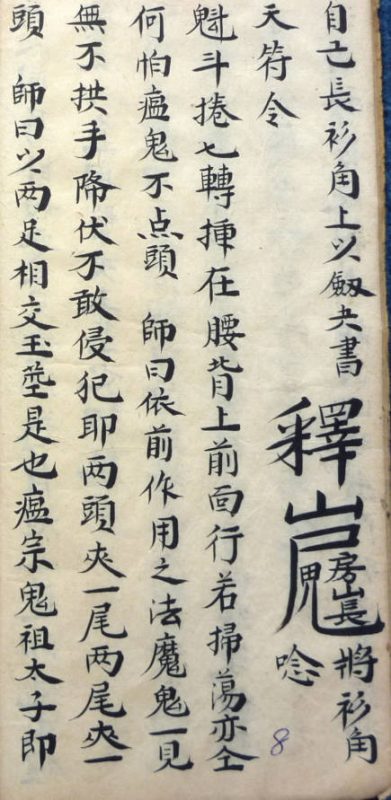 自己長衫角上以劍尖書釋 房山長 將衫角
天符令 唸
魁斗捲七轉揷在腰背上前面行若掃蕩亦仝
何怕瘟鬼不点頭 師曰依前作用之法魔鬼一見
無不拱手降伏不敢侵犯耶两頭夾一尾两尾夾一
頭 師曰以两足相交玉莖是也瘟宗鬼祖太子即
8